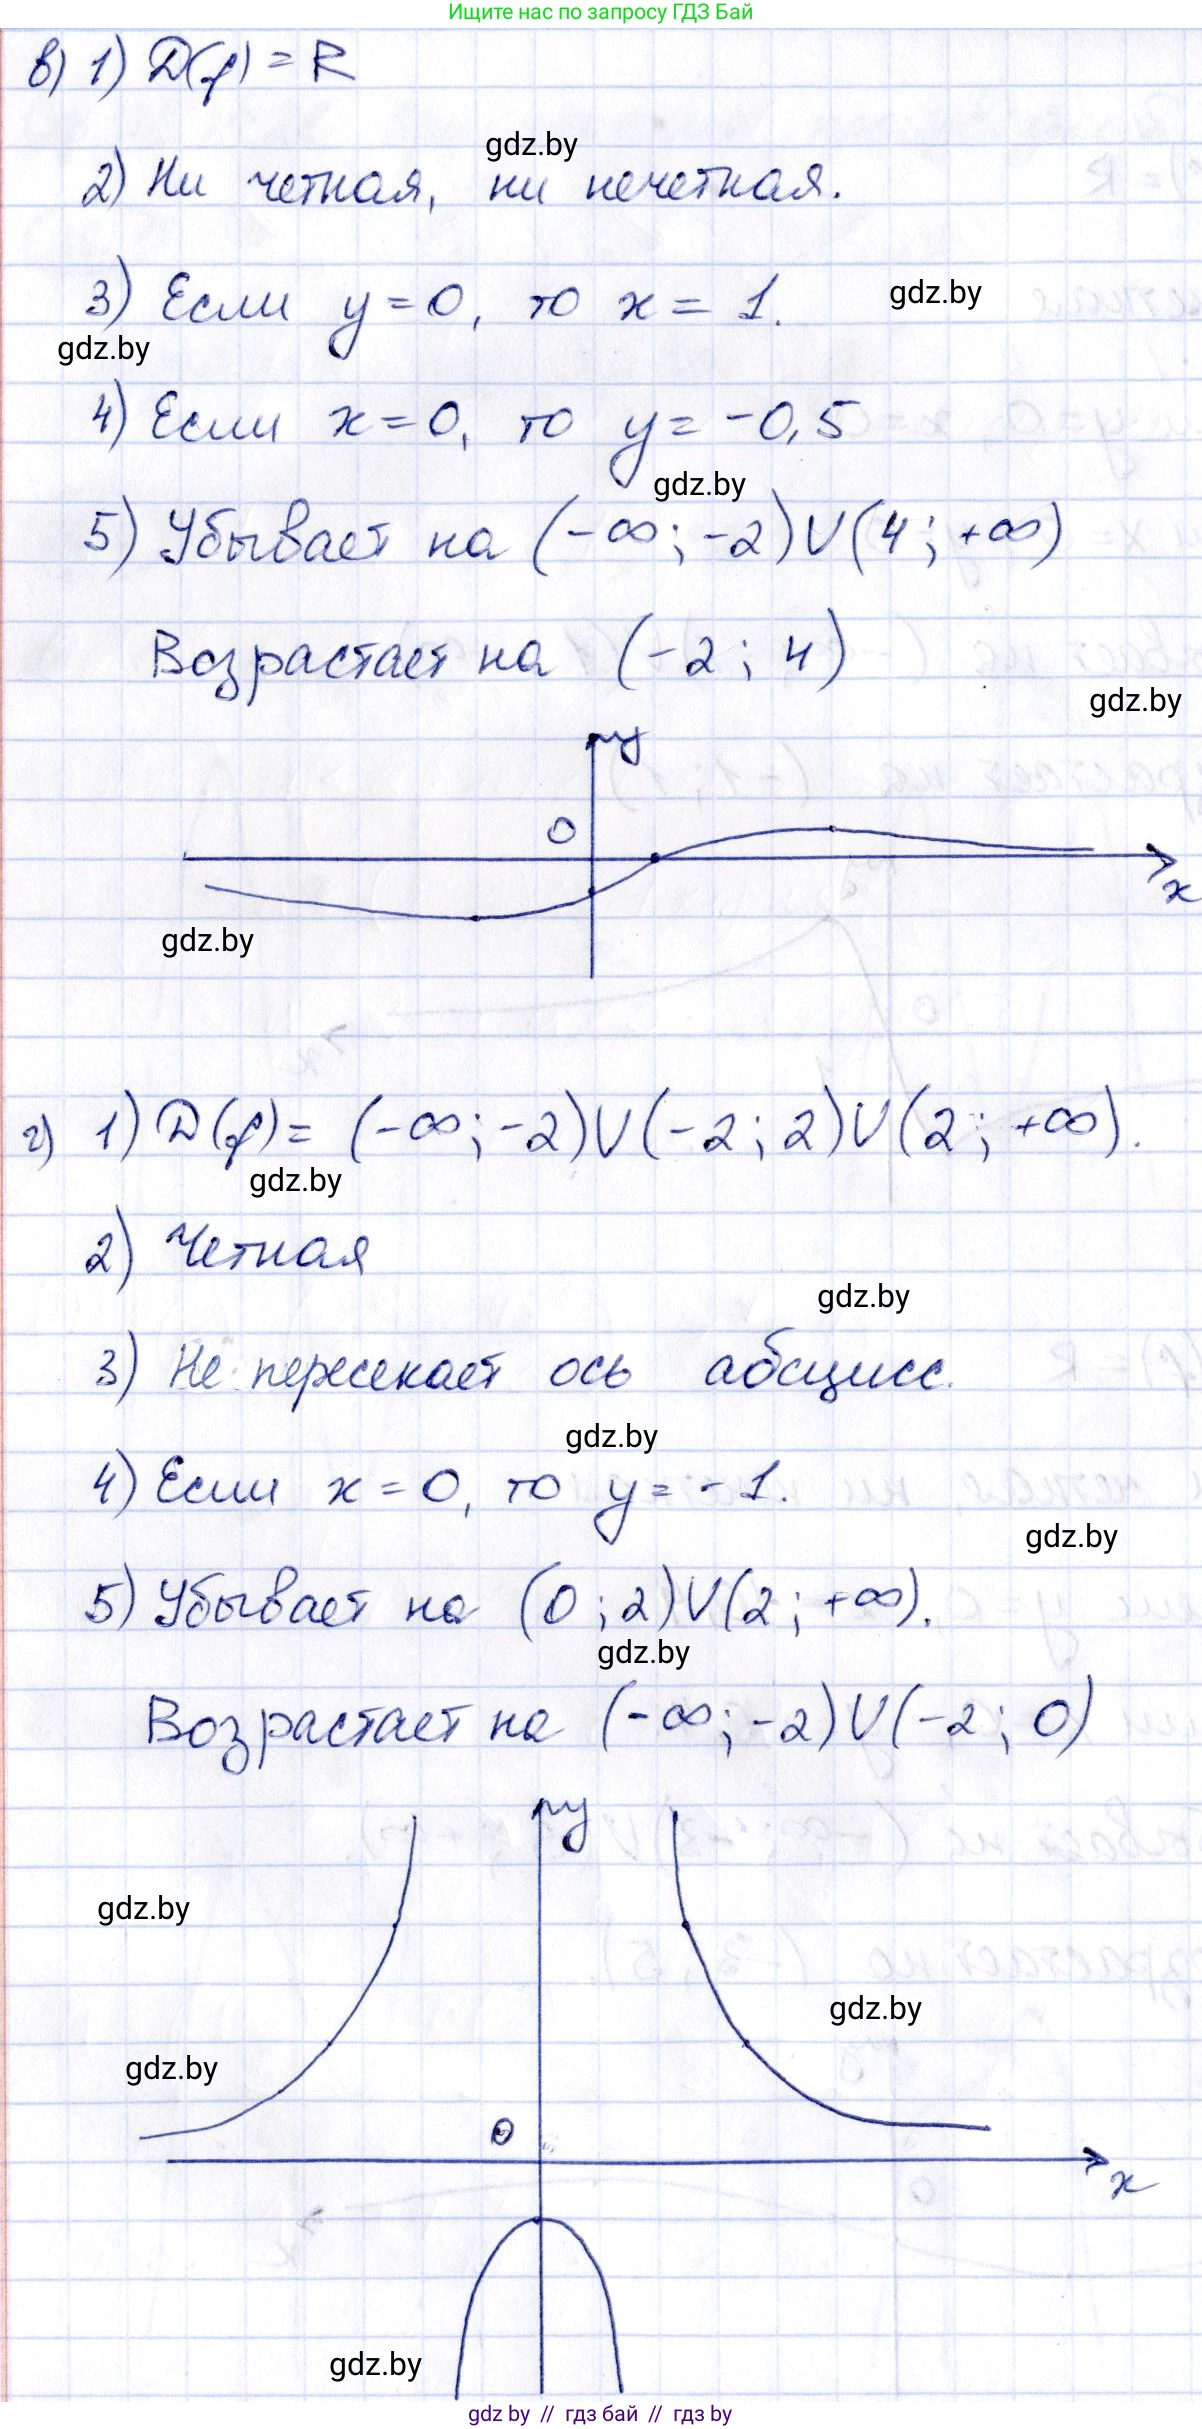 Ищите нас по запросу ГДЗ Бай
в) 1) D(f) = R
gdz.by
2) Ни четная, ни нечетная.
3) Если y=0, то x = 1.
gdz.by
gdz.by
4) Если x=0, то y = -0,5
gdz.by
5) Убывает на (-∞; -2)∪(4; +∞)
Возрастает на (-2; 4)
gdz.by
y
0
x
gdz.by
г) 1) D(f) = (-∞; -2)∪(-2; 2)∪(2; +∞).
gdz.by
2) Четная
gdz.by
3) Не пересекает ось абсцисс.
gdz.by
4) Если x = 0, то y = -1.
gdz.by
5) Убывает на (0; 2)∪(2; +∞).
gdz.by
Возрастает на (-∞; -2)∪(-2; 0)
y
gdz.by
gdz.by
gdz.by
0
x
gdz.by
gdz by // гдз бай // гдз by